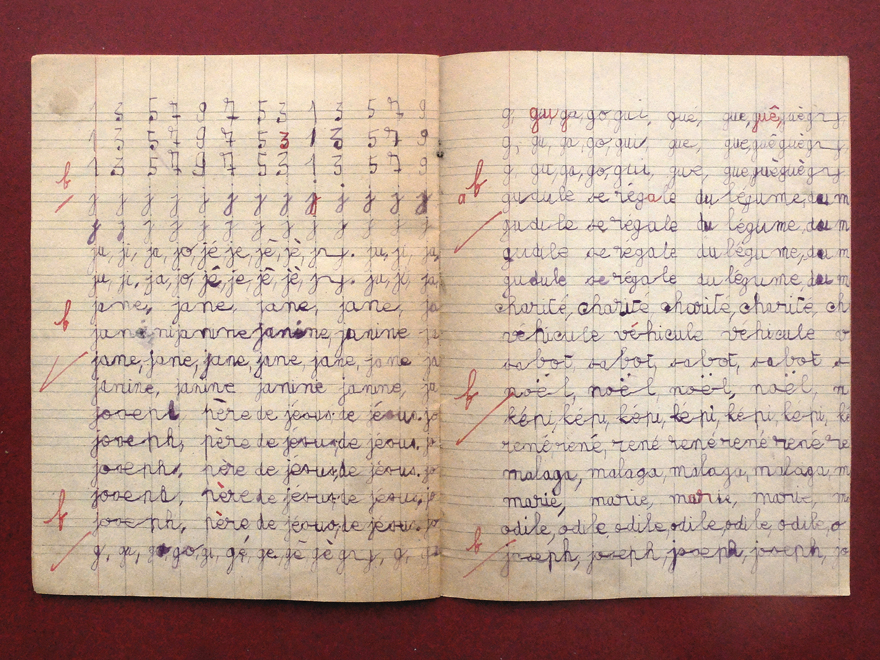 1 3 5 7 9 7 5 3 1 3 5 7 9
1 3 5 7 9 7 5 3 1 3 5 7 9
1 3 5 7 9 7 5 3 1 3 5 7 9
b
j j j j j j j j j j j j j
j j j j j j j j j j j j j
ju, ji, ja, jo, jé, je, jê, jè, ju, ji, ja,
ju, ji, ja, jo, jé, je, jê, jè, ju, ji, ja
jane, jane, jane, jane, ja
b
janine janine janine, janine ja
jane, jane, jane, jane, jane, jane ja
janine, janine janine janine, ja
joseph, père de jésus. de jésus. jo
joseph, père de jésus, de jésus. jo
joseph, père de jésus, de jésus. jo
joseph, père de jésus, de jésus. jo
b
joseph, père de jésus, de jésus. jo
g, gu, go
g, gu, ga, go, gui, gué, gue, guê, guè
g, gu, ga, go, gui, gué, gue, guê, guè
g, gu, ga, go, gui, gué, gue, guê, guè
a b
gudule se régale du légume, du m
gudule se régale du légume, du m
gudule se régale du légume, du m
gudule se régale du légume, du m
charité, charité charité, charité, ch
véhicule véhicule véhicule v
sabot, sabot, sabot, sabot s
b
noël, noël, noël, noël, n
képi, képi, képi, képi, képi, képi, ké
rené rené, rené rené rené rené re
malaga, malaga, malaga, malaga m
marie, marie, marie, marie, m
odile, odile, odile, odile, odile odile, o
b
joseph, joseph, joseph, joseph, jo